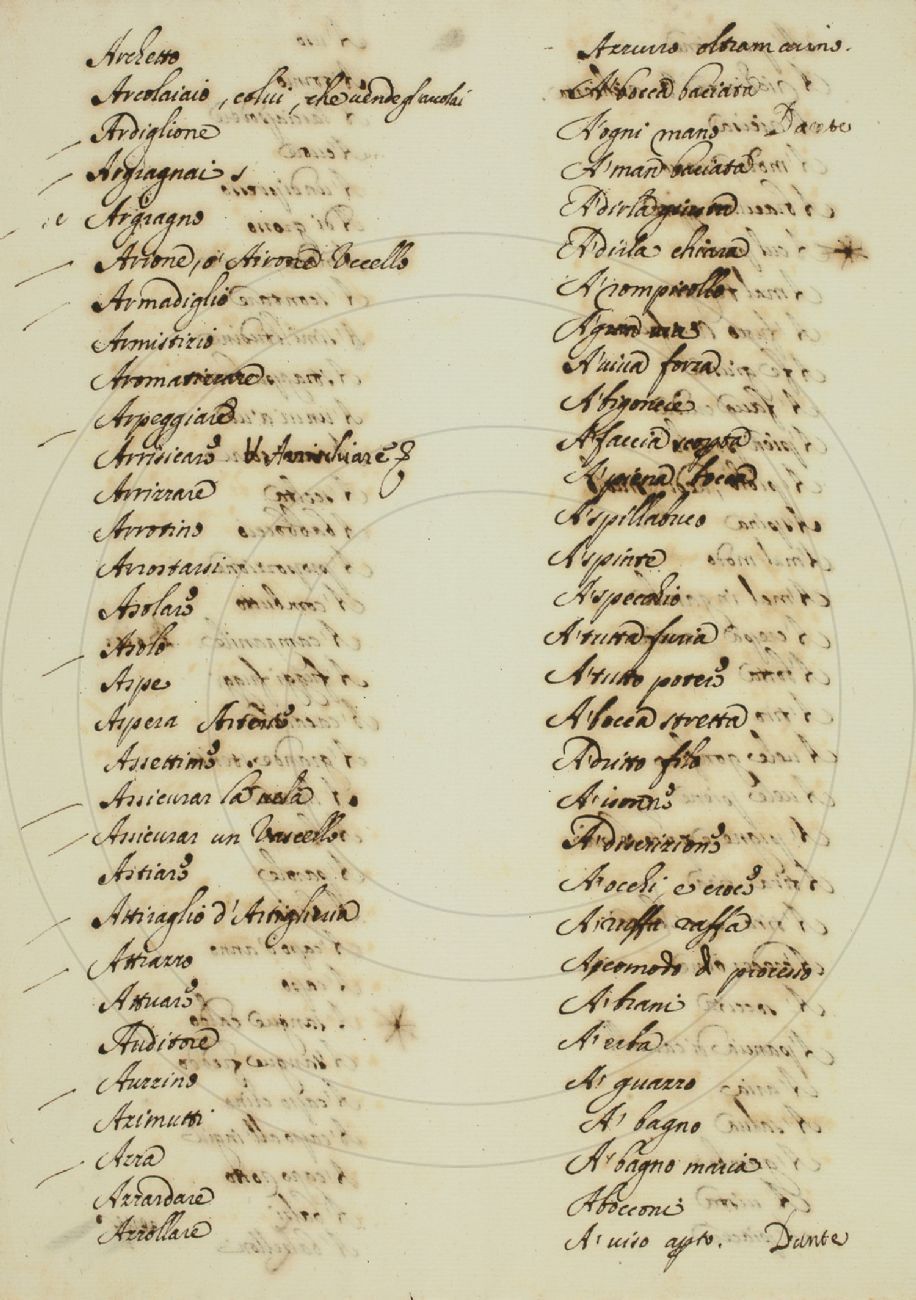 Archetto
Arcolaiaio, colui, che vende gl'arcolai
Ardiglione
Argagnai
Argagno
Arione, o Airone Vccello
Armadiglio
Armistizio
Aromatizzare
Arpeggiare
Arrisicare V. Arrischiare
Arrizzare
Arrotino
Arrostarsi
Asolare
Asolo
Aspe
Aspera Arteria
Assettime
Assicurar la vela
Assicurar un Vascello
Astiare
Attiraglio d'Artiglieria
Attizzo
Attuare
Auditore
Auzzino
Azimutti
Azza
Azzardare
Azzollare
Azzurro oltramarino.
A' bocca baciata
A' ogni mano Dante
A' man baciata
A dirla giusta
A dirla chiara
A' rompicollo
A' gran
A' viva forza
A' bigonce
A' faccia scopta
A' piena bocca
A' spillabuco
A' spinte
A' specchio
A' tutta furia
A' tutto potere
A' bocca stretta
A dritto filo
A' isonne
A' discrizione
A' occhi, e croce
A' ruffa raffa
A comodo di processo
A' brani
A' erba
A' guazzo
A' bagno
A' bagno maria
A bocconi
A' viso apto. Dante